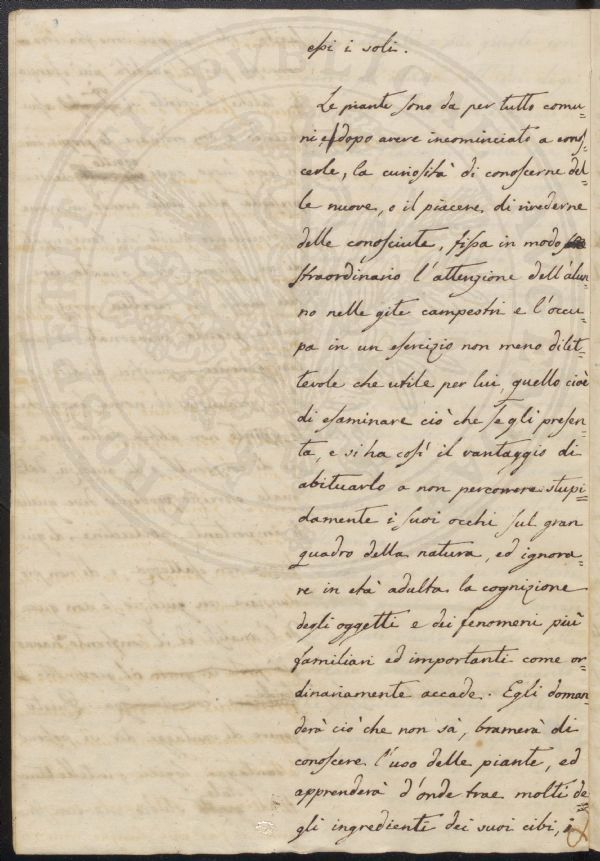 essi i soli.
Le piante sono da per tutto comu=
ni, e dopo avere incominciato a conos=
cerle, la curiosità di conoscerne del=
le nuove, o il piacere di rivederne
delle conosciute, fissa in modo
straordinario l'attenzione dell'alun=
no nelle gite campestri e l'occu=
pa in un esercizio non meno dilet=
tevole che utile per lui, quello cioè
di esaminare ciò che se gli presen=
ta, e si ha così il vantaggio di
abituarlo a non percorrere stupi=
damente i suoi occhi sul gran
quadro della natura, ed ignora=
re in età adulta la cognizione
degli oggetti e dei fenomeni più
familiari ed importanti come or=
dinariamente accade. Egli doman=
derà ciò che non sà, bramerà di
conoscere l'uso delle piante, ed
apprenderà d'onde trae molti de=
gli ingredienti dei suoi cibi,